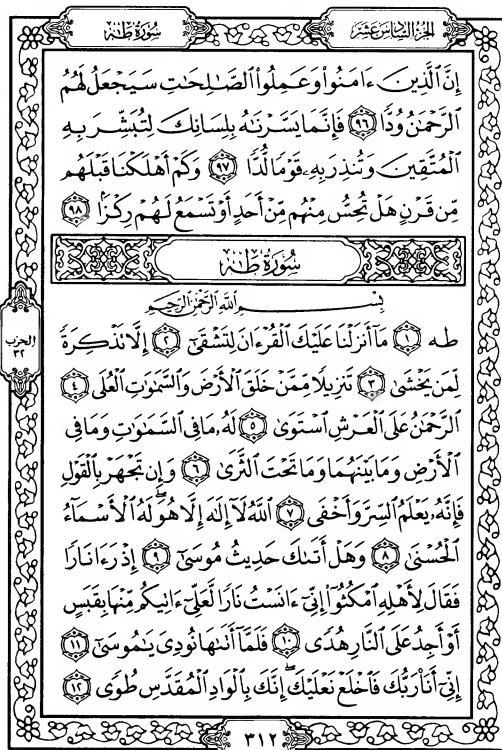 الجزء السادس عشر
سورة طه
إِنَّ ٱلَّذِينَ ءَامَنُوا۟ وَعَمِلُوا۟ ٱلصَّـٰلِحَـٰتِ سَيَجْعَلُ لَهُمُ
ٱلرَّحْمَـٰنُ وُدًّا ٩٦ فَإِنَّمَا يَسَّرْنَـٰهُ بِلِسَانِكَ لِتُبَشِّرَ بِهِ
ٱلْمُتَّقِينَ وَتُنذِرَ بِهِۦ قَوْمًا لُّدًّا ٩٧ وَكَمْ أَهْلَكْنَا قَبْلَهُم
مِّن قَرْنٍ هَلْ تُحِسُّ مِنْهُم مِّنْ أَحَدٍ أَوْ تَسْمَعُ لَهُمْ رِكْزًۢا ٩٨
سورة طه
بِسْمِ ٱللَّهِ ٱلرَّحْمَـٰنِ ٱلرَّحِيمِ
الحزب
٣٢
طه ١ مَآ أَنزَلْنَا عَلَيْكَ ٱلْقُرْءَانَ لِتَشْقَىٰٓ ٢ إِلَّا تَذْكِرَةً
لِّمَن يَخْشَىٰ ٣ تَنزِيلًا مِّمَّنْ خَلَقَ ٱلْأَرْضَ وَٱلسَّمَـٰوَٰتِ ٱلْعُلَى ٤
ٱلرَّحْمَـٰنُ عَلَى ٱلْعَرْشِ ٱسْتَوَىٰ ٥ لَهُۥ مَا فِى ٱلسَّمَـٰوَٰتِ وَمَا فِى
ٱلْأَرْضِ وَمَا بَيْنَهُمَا وَمَا تَحْتَ ٱلثَّرَىٰ ٦ وَإِن تَجْهَرْ بِٱلْقَوْلِ
فَإِنَّهُۥ يَعْلَمُ ٱلسِّرَّ وَأَخْفَى ٧ ٱللَّهُ لَآ إِلَـٰهَ إِلَّا هُوَ ۖ لَهُ ٱلْأَسْمَآءُ
ٱلْحُسْنَىٰ ٨ وَهَلْ أَتَىٰكَ حَدِيثُ مُوسَىٰٓ ٩ إِذْ رَءَا نَارًا
فَقَالَ لِأَهْلِهِ ٱمْكُثُوٓا۟ إِنِّىٓ ءَانَسْتُ نَارًا لَّعَلِّىٓ ءَاتِيكُم مِّنْهَا بِقَبَسٍ
أَوْ أَجِدُ عَلَى ٱلنَّارِ هُدًى ١٠ فَلَمَّآ أَتَىٰهَا نُودِىَ يَـٰمُوسَىٰٓ ١١
إِنِّىٓ أَنَا۠ رَبُّكَ فَٱخْلَعْ نَعْلَيْكَ ۖ إِنَّكَ بِٱلْوَادِ ٱلْمُقَدَّسِ طُوًى ١٢
٣١٢